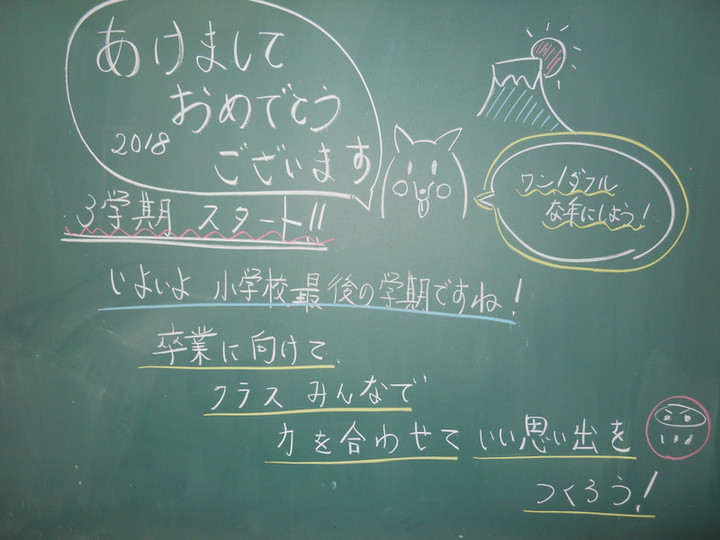 あけまして
おめでとう
2018 ございます
ワン!ダフル
な年にしよう!
3学期 スタート!!
いよいよ 小学校最後の学期ですね!
卒業に向けて、
クラス みんなで
力を合わせて いい思い出を
つくろう!